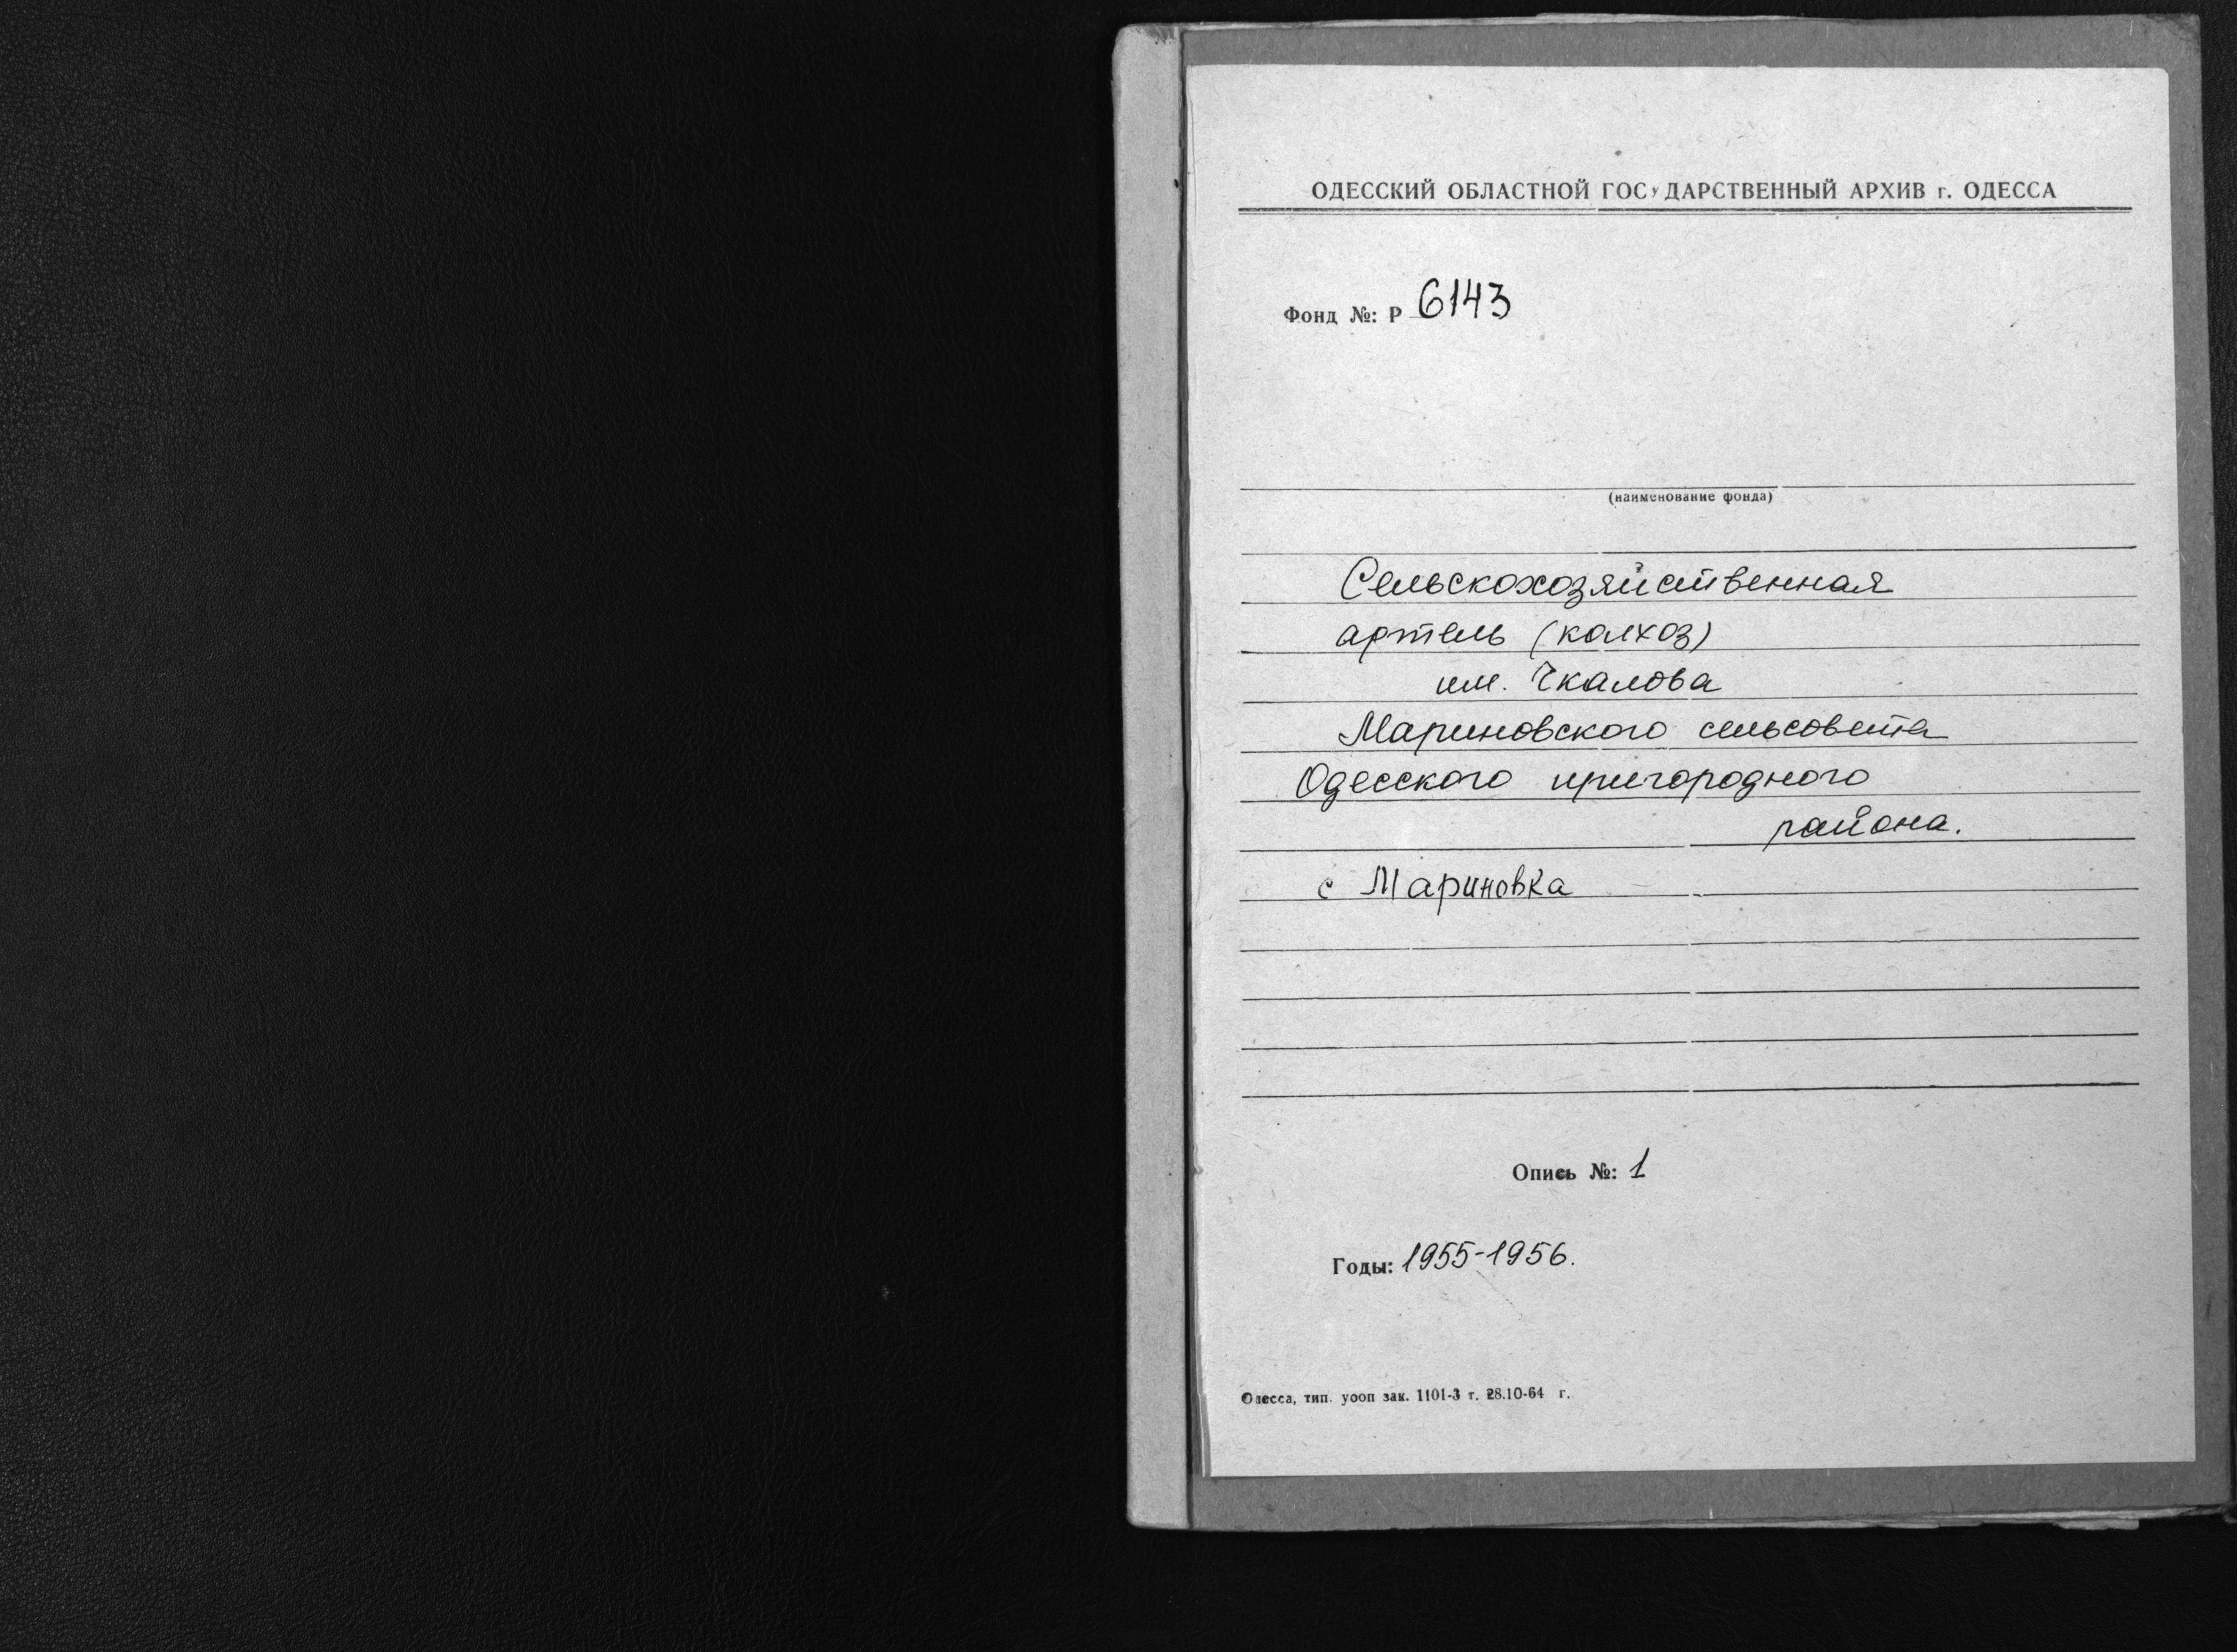 ОДЕССКИЙ ОБЛАСТНОЙ ГОСУДАРСТВЕННЫЙ АРХИВ г. ОДЕССА
Фонд №: Р 6143
(наименование фонда)
Сельскохозяйственная
артель (колхоз)
им. Чкалова
Мариновского сельсовета
Одесского пригородного
района.
с Мариновка
Опись №: 1
Годы: 1955-1956.
Одесса, тип. уооп зак. 1101-3 т. 28.10-64 г.